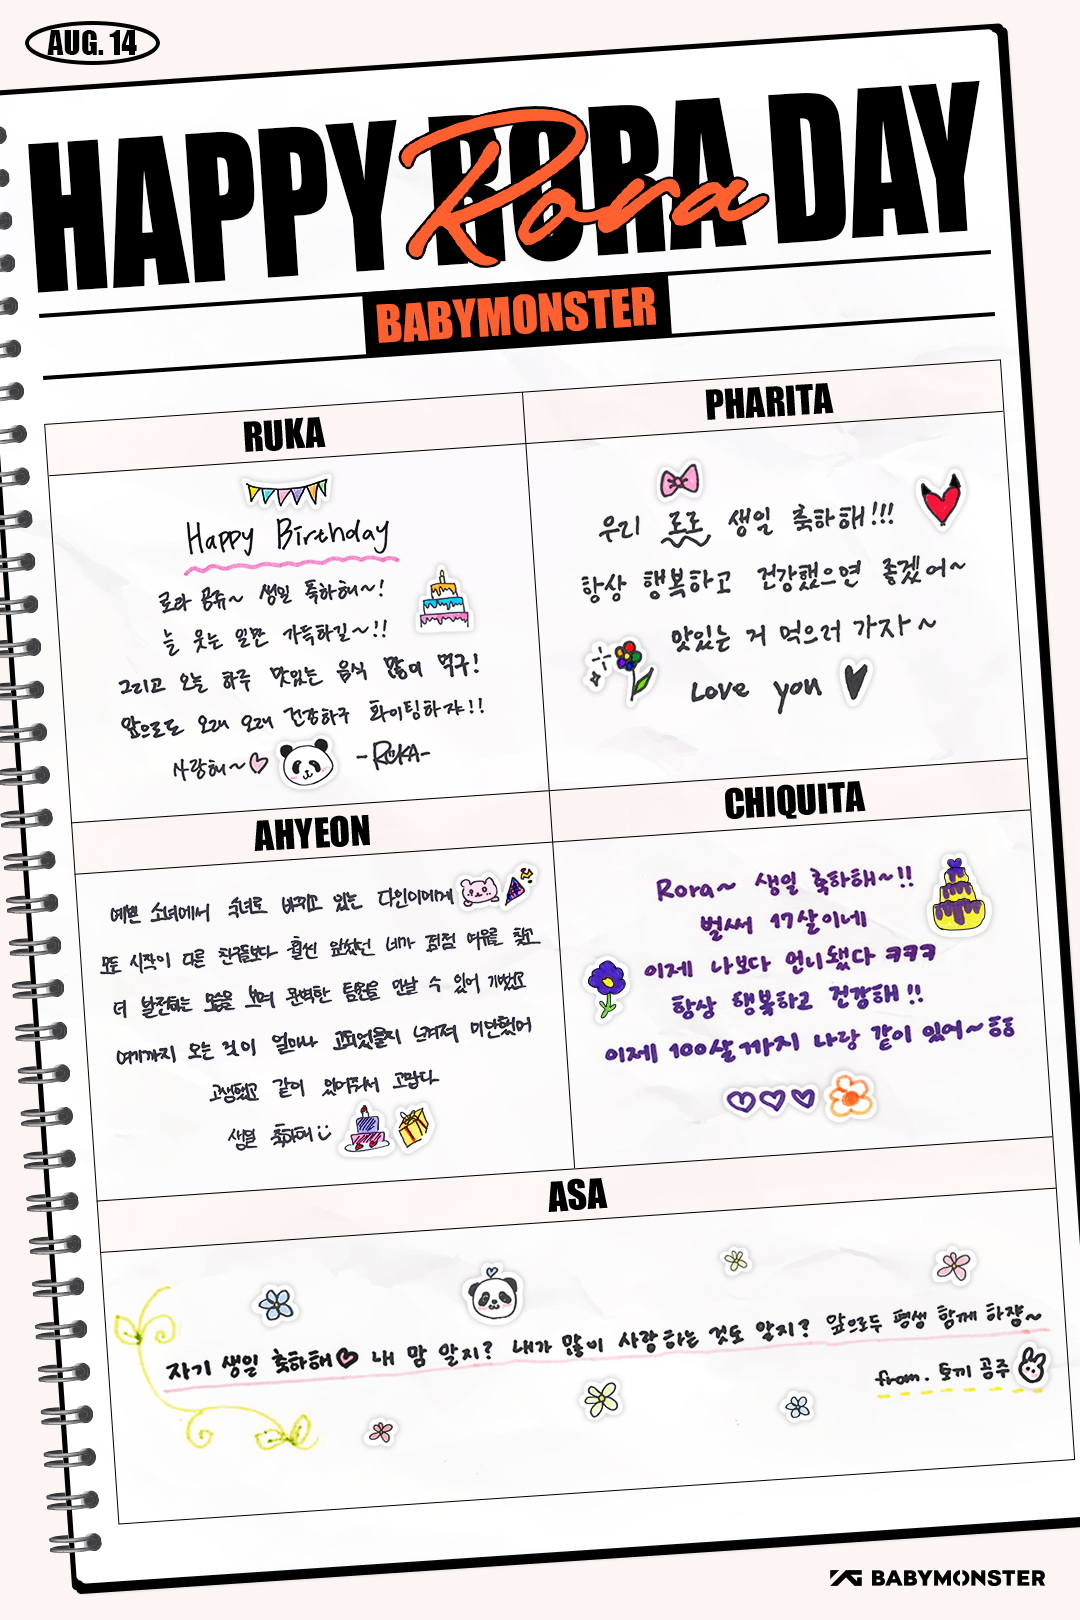 AUG. 14
HAPPY RORA DAY
Rora
BABYMONSTER
RUKA
Happy Birthday
로라 공쥬~ 생일 톡하해~!
늘 웃는 일만 가득하길~!!
그리고 오늘 하루 맛있는 음식 많이 먹구!
앞으로도 오래 오래 건강하구 화이팅하쟈!!
사랑해~♡
-RUKA-
PHARITA
우리 로로 생일 축하해!!!
항상 행복하고 건강했으면 좋겠어~
맛있는 거 먹으러 가자~
Love you ♥
AHYEON
예쁜 소녀에서 숙녀로 바뀌고 있는 다인이에게
모든 시작이 다른 친구들보다 훨씬 늦었던 네가 점점 여유를 찾고
더 발전하는 모습을 보며 완벽한 팀원을 만날 수 있어 기뻤고
여기까지 오는 것이 얼마나 고되었을지 느껴져 미안했어
고생했고 같이 있어줘서 고맙다
생일 축하해
CHIQUITA
Rora~ 생일 축하해~!!
벌써 17살이네
이제 나보다 언니됐다 ㅋㅋㅋ
항상 행복하고 건강해!!
이제 100살까지 나랑 같이 있어~ㅎㅎ
♡♡♡
ASA
자기 생일 축하해♡ 내 맘 알지? 내가 많이 사랑하는 것도 알지? 앞으로두 평생 함께 하쟝~
from. 토끼 공주
YG BABYMONSTER